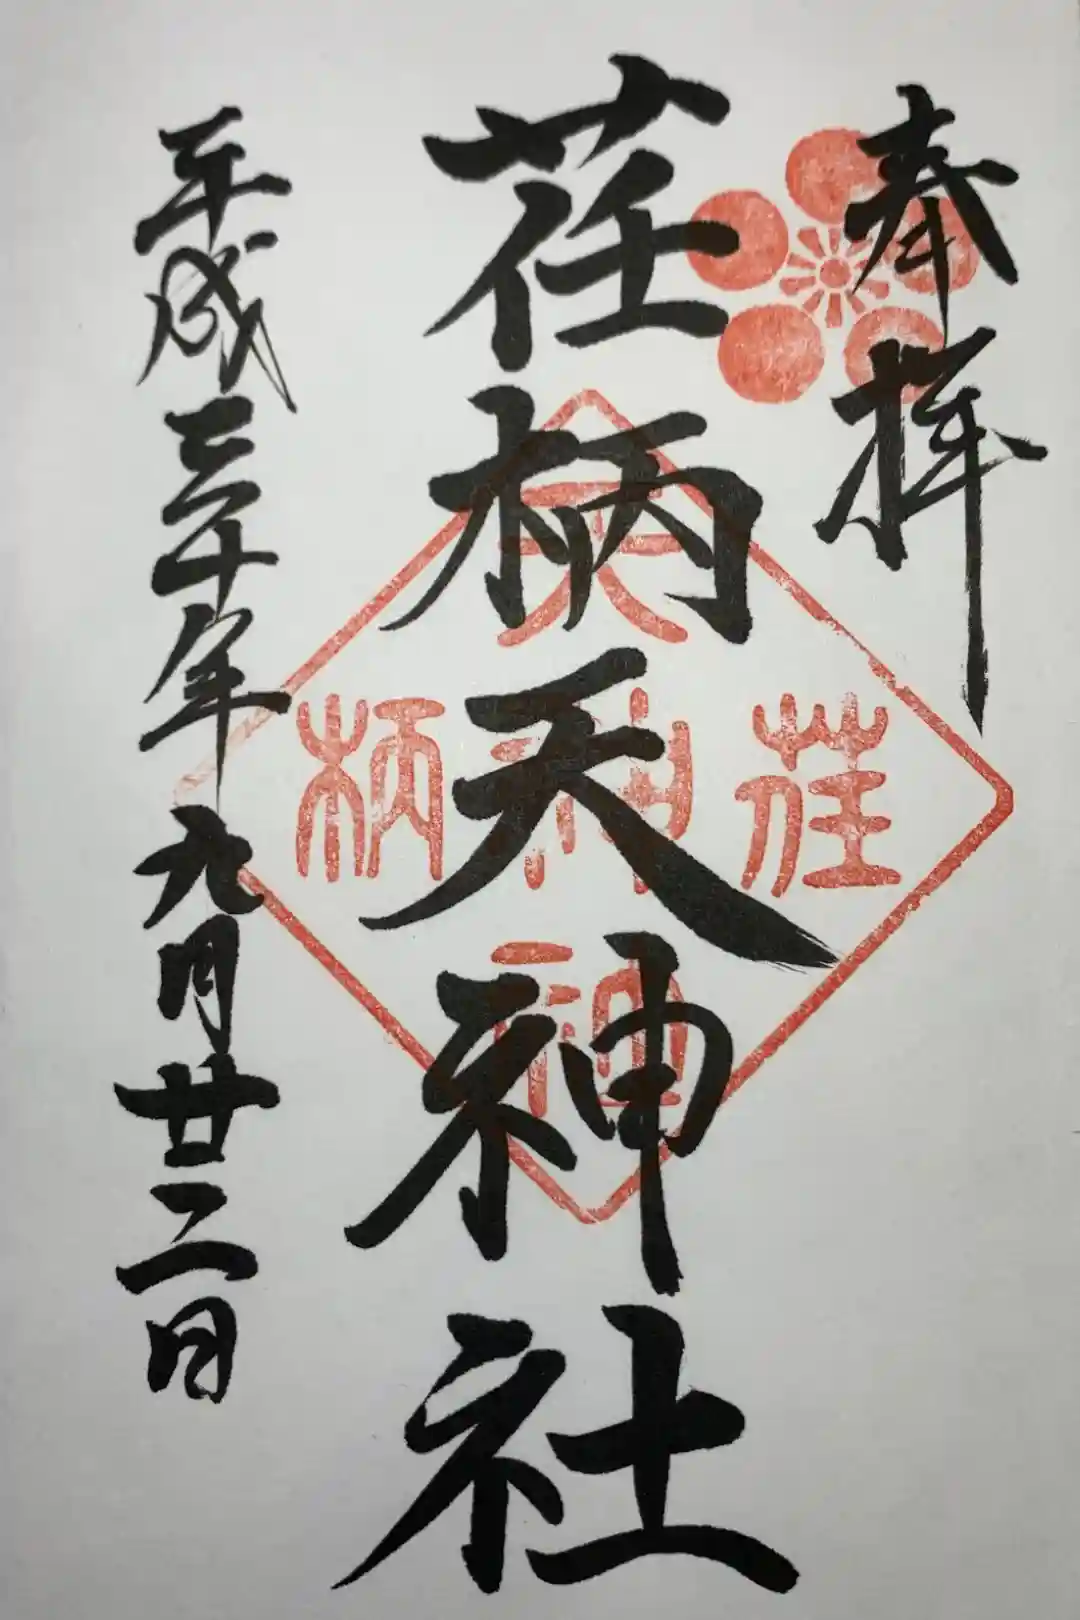 奉拝
荏柄天神社
平成三十年九月廿二日
荏柄天神社